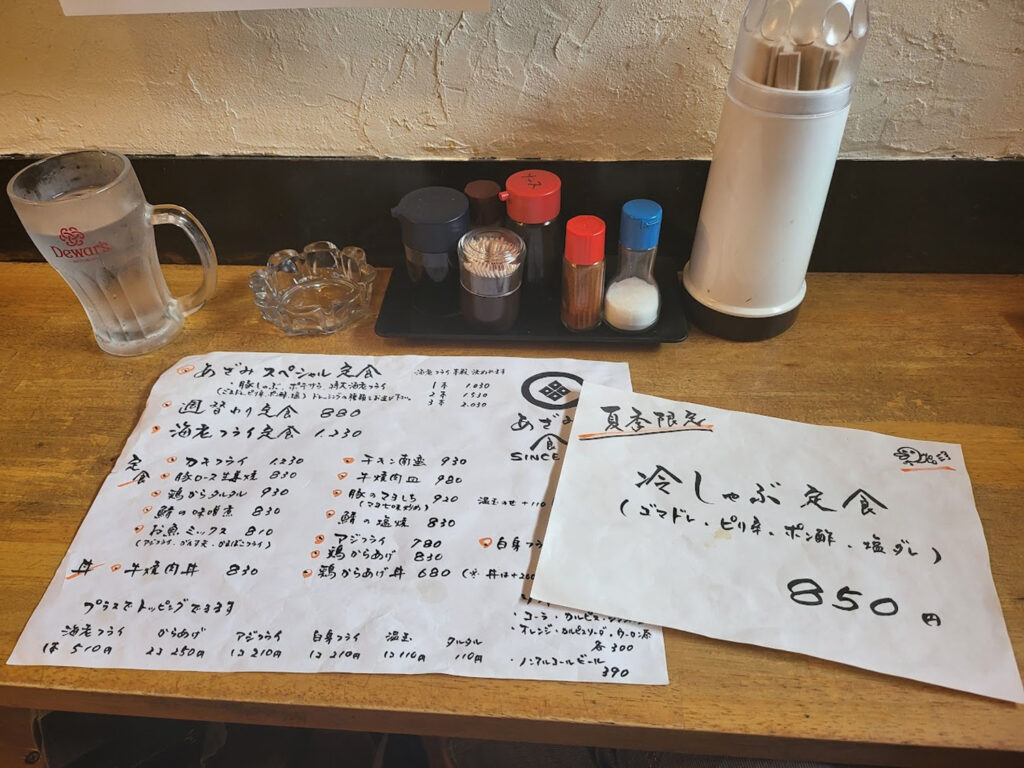 Dewar's
あざみ スペシャル 定食
海老フライ本数 決めれます
・豚しゃぶ、ポテサラ、特大海老フライ
1本 1.030
2本 1.530
3本 2.030
週替わり定食 880
海老フライ定食 1.230
あざみ
食
SINCE
定食
カキフライ 1.230
豚ロース生姜焼 830
鶏からタルタル 930
鯖の味噌煮 830
お魚ミックス 810
チキン南蛮 930
牛焼肉皿 980
豚のマヨしち 920
(マヨ七味炒め)
温玉のせ+110
鯖の塩焼 830
アジフライ 780
白身フラ
鶏からあげ 830
丼
牛焼肉丼 830
鶏からあげ丼 680
プラスでトッピングできます
海老フライ からあげ アジフライ 白身フライ 温玉 タルタル
1本 510円 2コ 250円 1コ 210円 1コ 210円 1コ 110円 110円
・コーラ・カルピス・
・オレンジ・カルピスソーダ・ウーロン茶
各300
・ノンアルコールビール
390
夏季限定
冷しゃぶ定食
(ゴマドレ・ピリ辛・ポン酢・塩ダレ)
850円